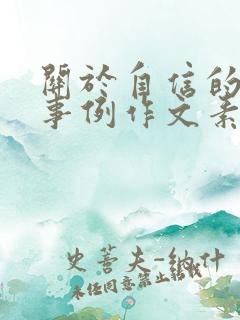 關於自信的
事例作文素
史蒂夫-納什
未任同意禁止轉載